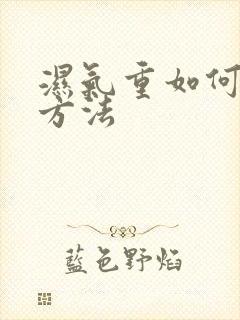 濕氣重如何
方法
藍色野焰